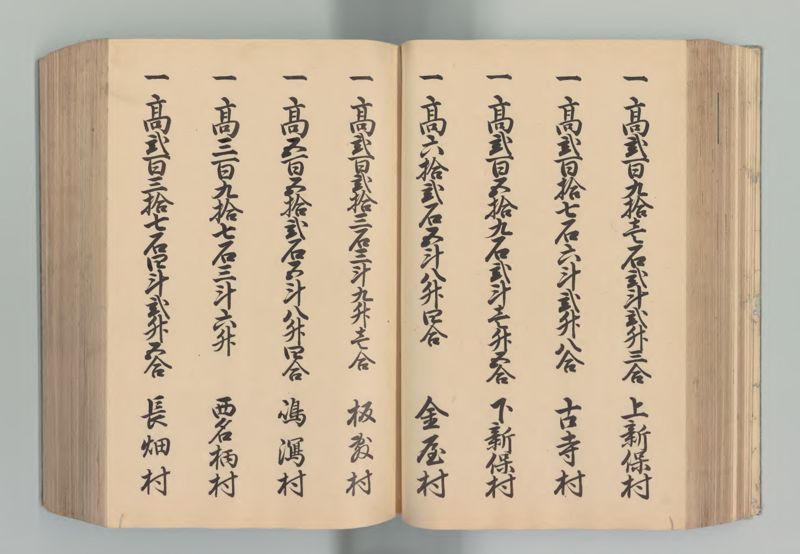 一高弐百九拾壱石弐斗弐升三合 上新保村
一高弐百拾七石六斗弐升八合 古寺村
一高弐百五拾九石弐斗壱升五合 下新保村
一高六拾弐石五斗八升四合 金屋村
一高弐百弐拾三石三斗九升壱合 板敷村
一高五百五拾弐石五斗八升四合 嶋潟村
一高三百九拾七石三斗六升 西名柄村
一高弐百三拾七石四斗弐升五合 長畑村